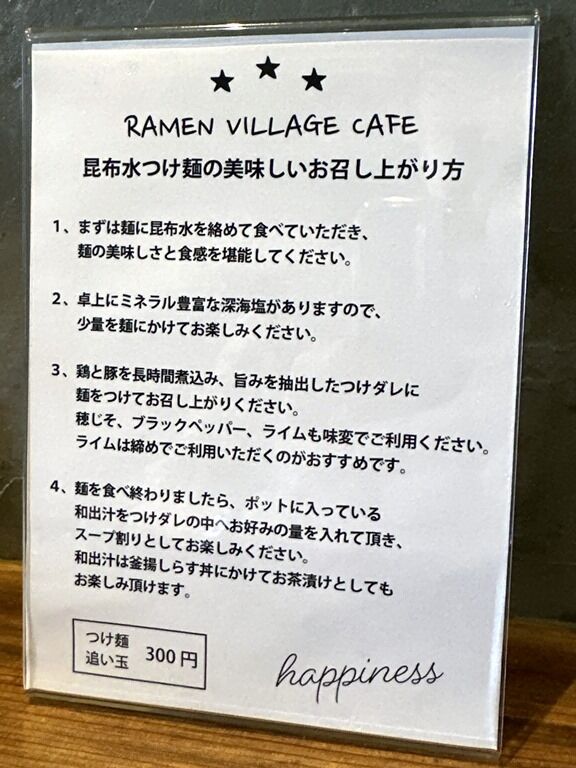 ★ ★ ★
RAMEN VILLAGE CAFE
昆布水つけ麺の美味しいお召し上がり方
1、まずは麺に昆布水を絡めて食べていただき、
麺の美味しさと食感を堪能してください。
2、卓上にミネラル豊富な深海塩がありますので、
少量を麺にかけてお楽しみください。
3、鶏と豚を長時間煮込み、旨みを抽出したつけダレに
麺をつけてお召し上がりください。
穂じそ、ブラックペッパー、ライムも味変でご利用ください。
ライムは締めでご利用いただくのがおすすめです。
4、麺を食べ終わりましたら、ポットに入っている
和出汁をつけダレの中へお好みの量を入れて頂き、
スープ割りとしてお楽しみください。
和出汁は釜揚しらす丼にかけてお茶漬けとしても
お楽しみ頂けます。
つけ麺
追い玉 300円
happiness